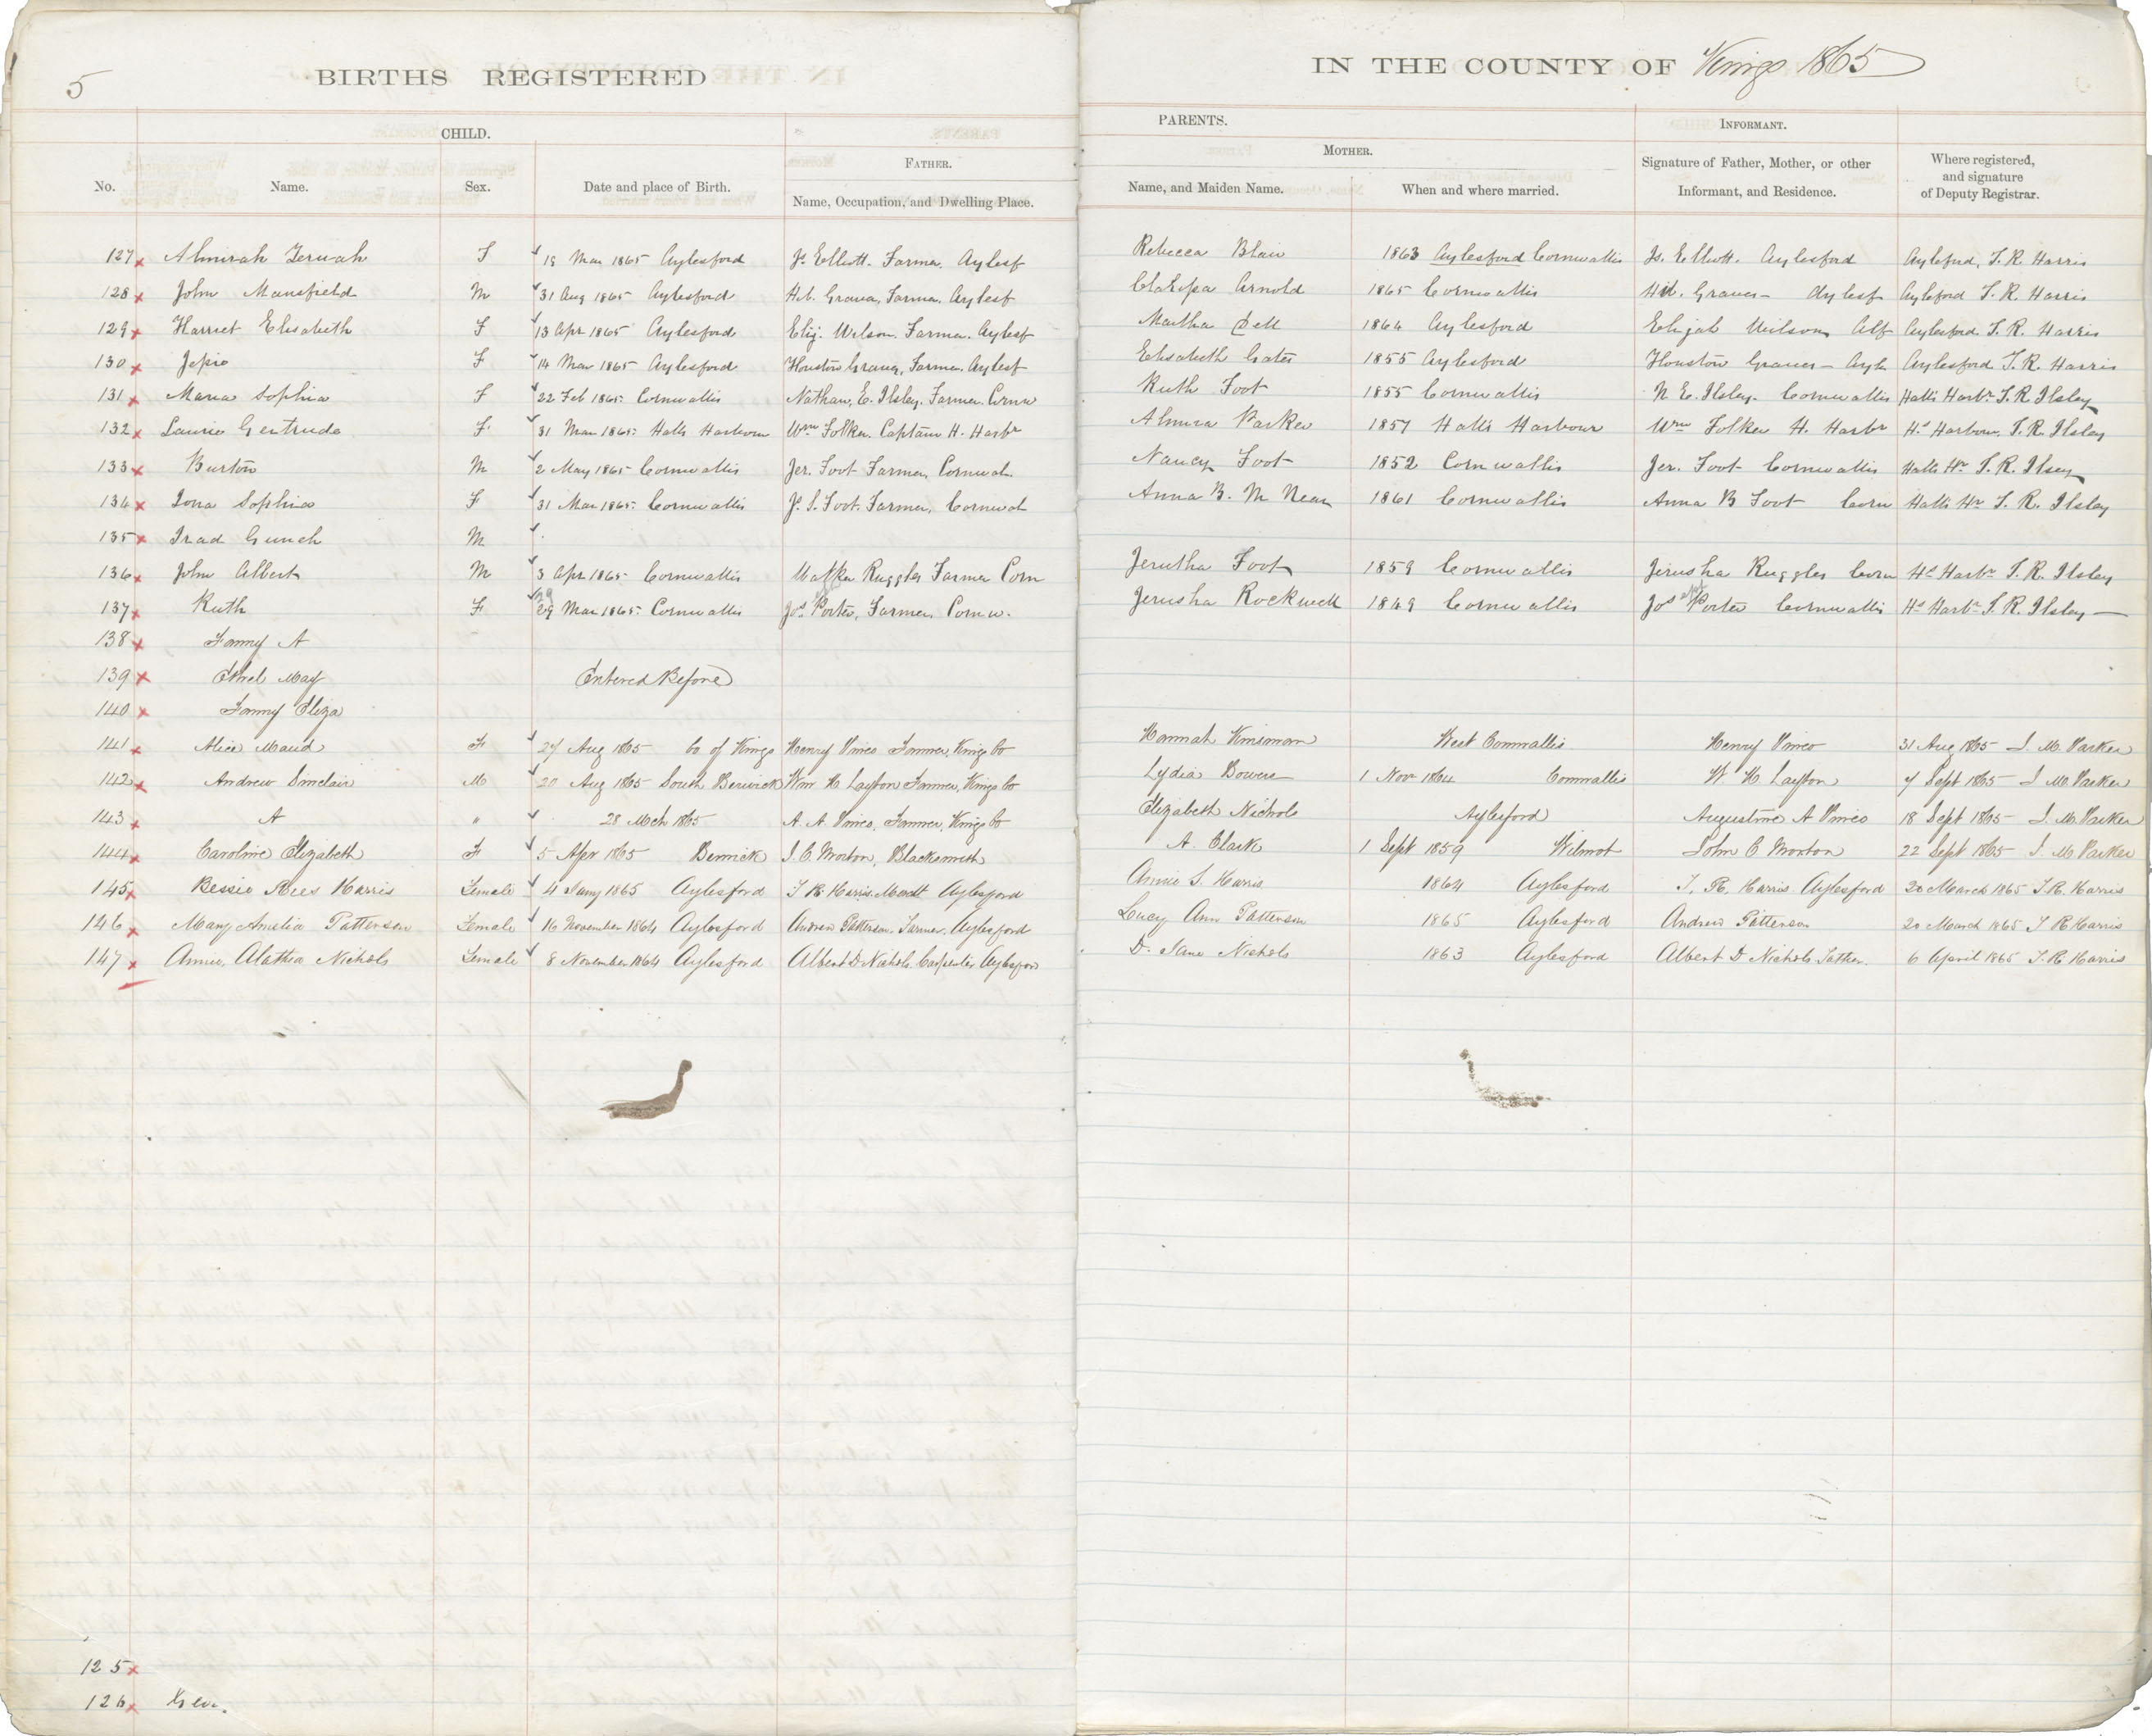 5
BIRTHS REGISTERED
IN THE COUNTY OF Kings 1865
CHILD.
PARENTS.
INFORMANT.
FATHER.
MOTHER.
No.
Name.
Sex.
Date and place of Birth.
Name, Occupation, and Dwelling Place.
Name, and Maiden Name.
When and where married.
Signature of Father, Mother, or other Informant, and Residence.
Where registered, and signature of Deputy Registrar.
127 Almirah Jeruah F 19 Mar 1865 Aylesford Js. Elliott. Farmer. Aylesf Rebecca Blair 1863 Aylesford Cornwallis Js. Elliott. Aylesford Aylesford, T. R. Harris
128 John Mansfield M 31 Aug 1865 Aylesford Graves, Farmer, Aylesf Arnold 1865 Cornwallis Graves - Aylesf Aylesford T. R. Harris
129 Harriet Elisabeth F 13 Apr 1865 Aylesford Elij. Wilson. Farmer. Aylesf Martha 1864 Aylesford Elijah Wilson Aylesford T. R. Harris
130 Jessie F 14 Mar 1865 Aylesford Houston Graves, Farmer, Aylesf Elisabeth Gates 1855 Aylesford Houston Graves - Ayls. Aylesford T. R. Harris
131 Maria Sophia F 22 Feb 1865 Cornwallis Nathan, E. Ilsley. Farmer. Cornw Ruth Foot 1855 Cornwallis N. E. Ilsley. Cornwallis Halls Harbr T. R. Ilsley
132 Laurie Gertrude F. 31 Mar 1865 Halls Harbour Wm Folker. Captain H. Harbr Almira Parker 1857 Halls Harbour Wm Folker H. Harbr Hs Harbour. T. R. Ilsley
133 Burton M 2 May 1865 Cornwallis Jer. Foot Farmer, Cornwal. Nancy Foot 1852 Cornwallis Jer. Foot Cornwallis Halls Hr T. R. Ilsey
134 Iona Sophia F 31 Mar 1865 Cornwallis J. S. Foot. Farmer, Cornwal Anna B. McNear 1861 Cornwallis Anna B Foot Corn Halls Hr T. R. Ilsley
135 Irad Gunch M.
136 John Albert M 3 Apr 1865 Cornwallis Walker Ruggles Farmer Corn Jerutha Foot 1859 Cornwallis Jerusha Ruggles Corn Hs Harbr T. R. Ilsley
137 Ruth F 29 29 Mar 1865 Cornwallis Jos Porter, Farmer, Cornw. Jerusha Rockwell 1849 Cornwallis Jos Porter Cornwallis Hs Harbr T. R. Ilsley
138 Fanny A
139 Ethel May Entered Before
140 Fanny Eliza
141 Alice Maud F 27 Aug 1865 Co of Kings Henry Pineo Farmer, Kings Co Hannah Kinsman West Cornwallis Henry Pineo 31 Aug 1865 - I. M. Parker
142 Andrew Sinclair M 20 Aug 1865 South Berwick Wm H Layton Farmer, Kings Co Lydia Bowers 1 Nov 1864 Cornwallis W. H. Layton 7 Sept 1865 - I M Parker
143 A " 28 Mch 1865 A. A Pineo, Farmer, Kings Co Elizabeth Nichols Aylesford Augustine A Pineo 18 Sept 1865 - I. M. Parker
144 Caroline Elizabeth F 5 Apr 1865 Berwick J. C. Morton, Blacksmith A. Clark 1 Sept 1859 Wilmot John C Morton 22 Sept 1865 - I. M Parker
145 Bessie Rees Harris Female 4 Jany 1865 Aylesford T R Harris. Aylesford Annie S. Harris 1864 Aylesford T. R. Harris Aylesford 20 March 1865 T. R. Harris
146 Mary Amelia Patterson Female 16 November 1864 Aylesford Andrew Patterson. Farmer. Aylesford Lucy Ann Patterson 1865 Aylesford Andrew Patterson 20 March 1865 T R Harris
147 Annie Alathia Nichols Female 8 November 1864 Aylesford Albert D Nichols. Carpenter Aylesford D. Jane Nichols 1863 Aylesford Albert D Nichols Father. 6 April 1865 T. R. Harris
125
126